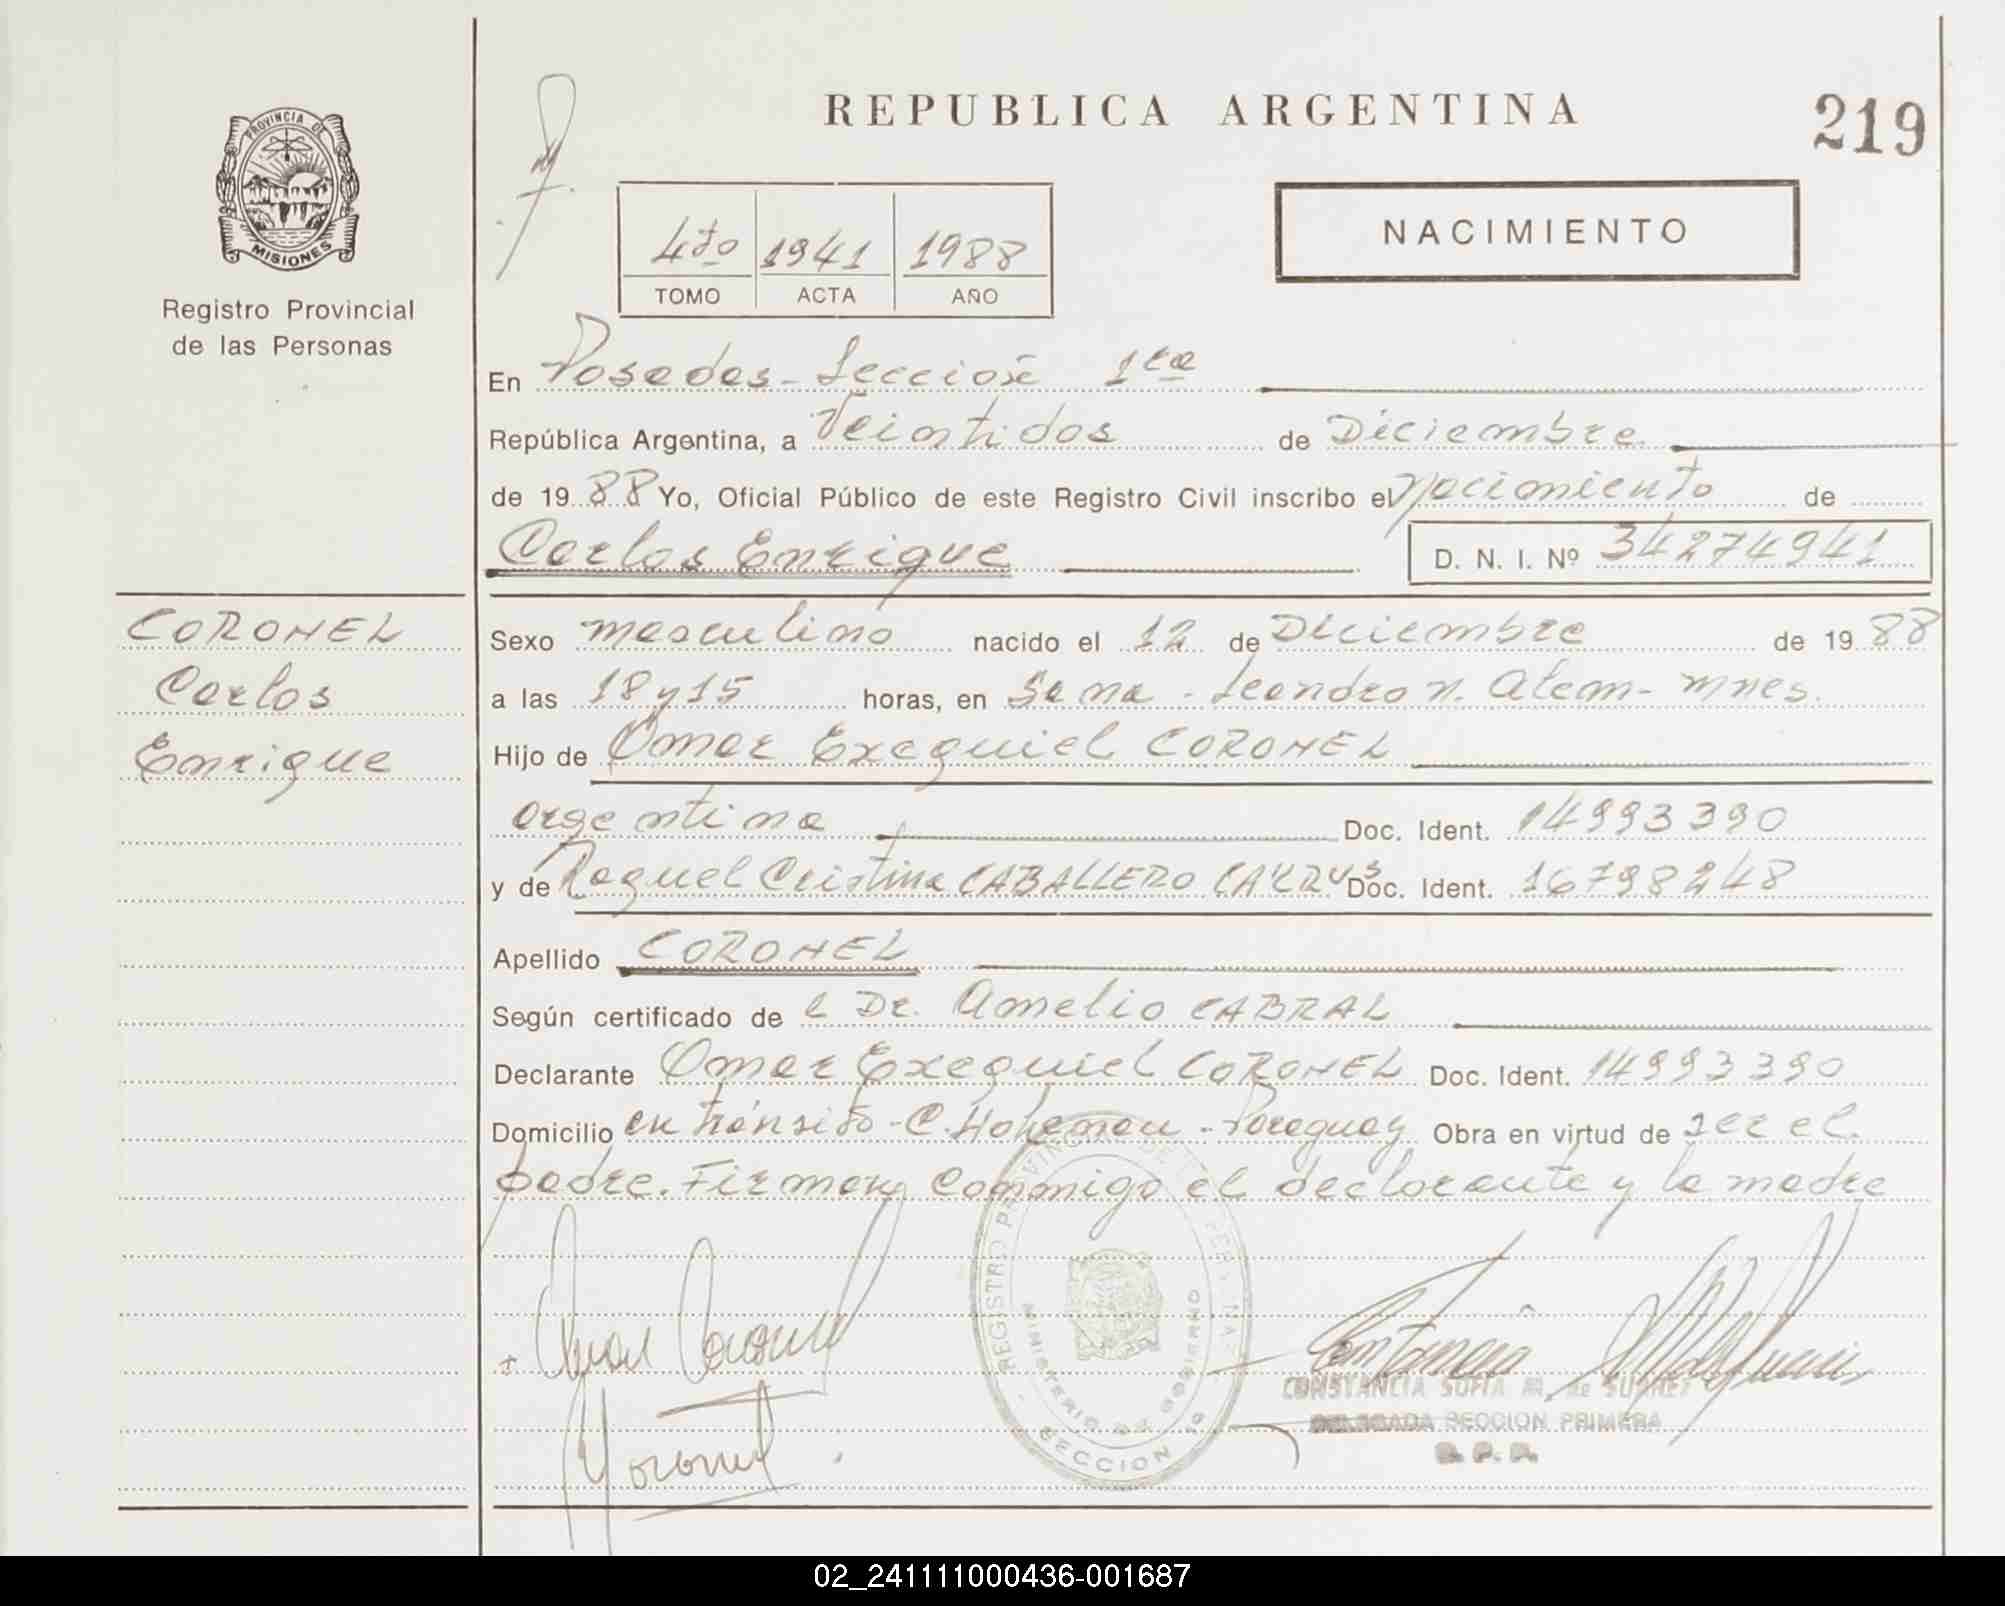 REPUBLICA ARGENTINA
219
PROVINCIA DE
MISIONES
Registro Provincial
de las Personas
4to 1941 1988
TOMO ACTA AÑO
NACIMIENTO
En Posadas - Sección 1ra
República Argentina, a Veintidos de Diciembre
de 1988 Yo, Oficial Público de este Registro Civil inscribo el Nacimiento de
Carlos Enrique D. N. I. Nº 34274941
CORONEL
Carlos
Enrique
Sexo masculino nacido el 12 de Diciembre de 1988
a las 18 y 15 horas, en Leandro N. Alem - Mnes.
Hijo de Omar Exequiel CORONEL
argentina Doc. Ident. 14993390
y de Raquel Cristina CABALLERO Doc. Ident. 16798248
Apellido CORONEL
Según certificado de l Dr. Amelio CABRAL
Declarante Omar Exequiel CORONEL Doc. Ident. 14993390
Domicilio en tránsito - C. Hohenau - Paraguay Obra en virtud de ser el
padre. Firman conmigo el declarante y la madre
REGISTRO PROVINCIAL DE LAS PERSONAS
MINISTERIO DE GOBIERNO
SECCION 1º
Omar Coronel
CONSTANCIA SOFIA M. de SUAREZ
DELEGADA SECCION PRIMERA
R. P. P.
02_241111000436-001687